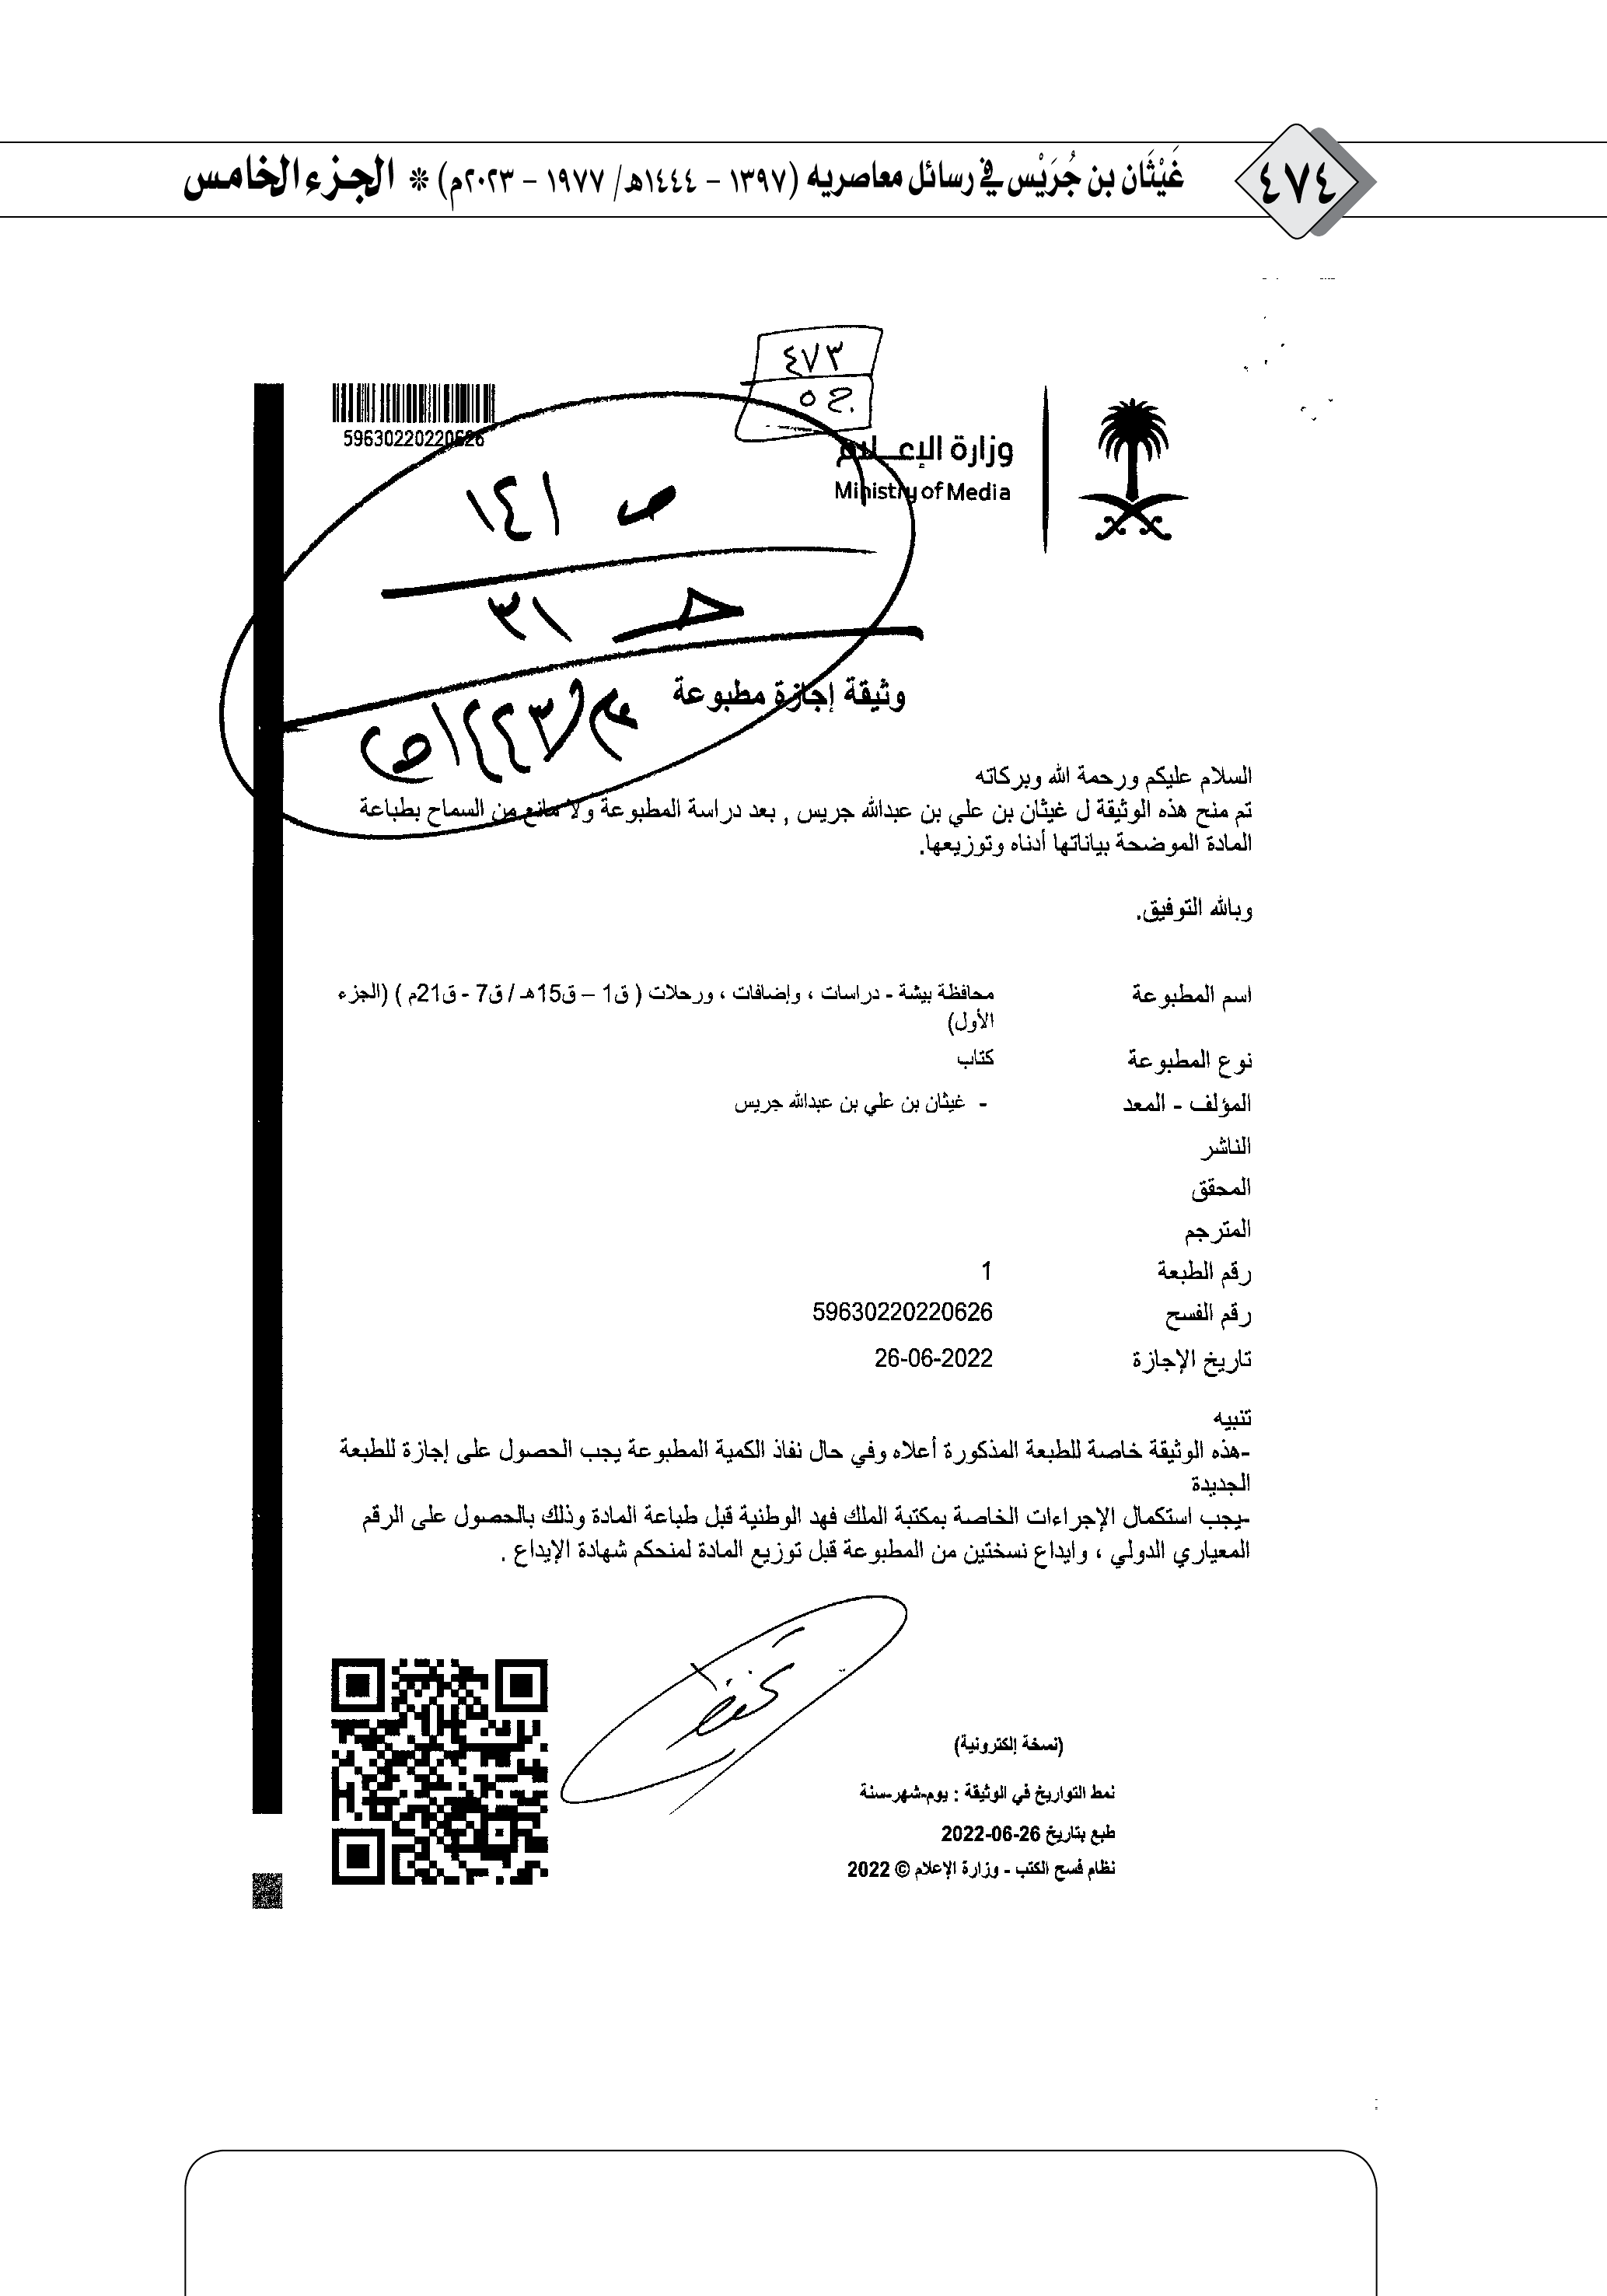 ٤٧٤
غَيْثَان بن جُرَيْس في رسائل معاصريه (١٣٩٧ – ١٤٤٤هـ/ ١٩٧٧ – ٢٠٢٣م) * الجزء الخامس
٤٧٣
ج ٥
59630220220626
وزارة الإعـلام
Ministry of Media
ص ١٤١
حـ ٣١
وثيقة إجازة مطبوعة
السلام عليكم ورحمة الله وبركاته
تم منح هذه الوثيقة ل غيثان بن علي بن عبدالله جريس , بعد دراسة المطبوعة ولا مانع من السماح بطباعة
المادة الموضحة بياناتها أدناه وتوزيعها.
وبالله التوفيق.
اسم المطبوعة محافظة بيشة - دراسات ، وإضافات ، ورحلات ( ق1 – ق15هـ / ق7 - ق21م ) (الجزء
الأول)
نوع المطبوعة كتاب
المؤلف - المعد - غيثان بن علي بن عبدالله جريس
الناشر
المحقق
المترجم
رقم الطبعة 1
رقم الفسح 59630220220626
تاريخ الإجازة 26-06-2022
تنبيه
-هذه الوثيقة خاصة للطبعة المذكورة أعلاه وفي حال نفاذ الكمية المطبوعة يجب الحصول على إجازة للطبعة
الجديدة
-يجب استكمال الإجراءات الخاصة بمكتبة الملك فهد الوطنية قبل طباعة المادة وذلك بالحصول على الرقم
المعياري الدولي ، وايداع نسختين من المطبوعة قبل توزيع المادة لمنحكم شهادة الإيداع .
(نسخة إلكترونية)
نمط التواريخ في الوثيقة : يوم-شهر-سنة
طبع بتاريخ 26-06-2022
نظام فسح الكتب - وزارة الإعلام © 2022